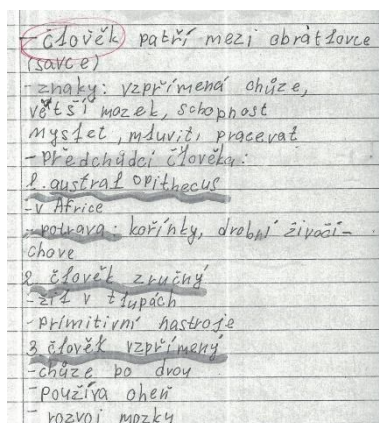 - člověk patří mezi obratlovce
(savce)
- znaky: vzpřímená chůze,
větší mozek, schopnost
myslet, mluvit, pracovat
- předchůdci člověka:
1. australopithecus
- v Africe
- potrava: kořínky, drobní živoči-
chove
2. člověk zručný
- žil v tlupách
- primitivní nastroje
3. člověk vzpřímený
- chůze po dvou
- používa oheň
- rozvoj mozky